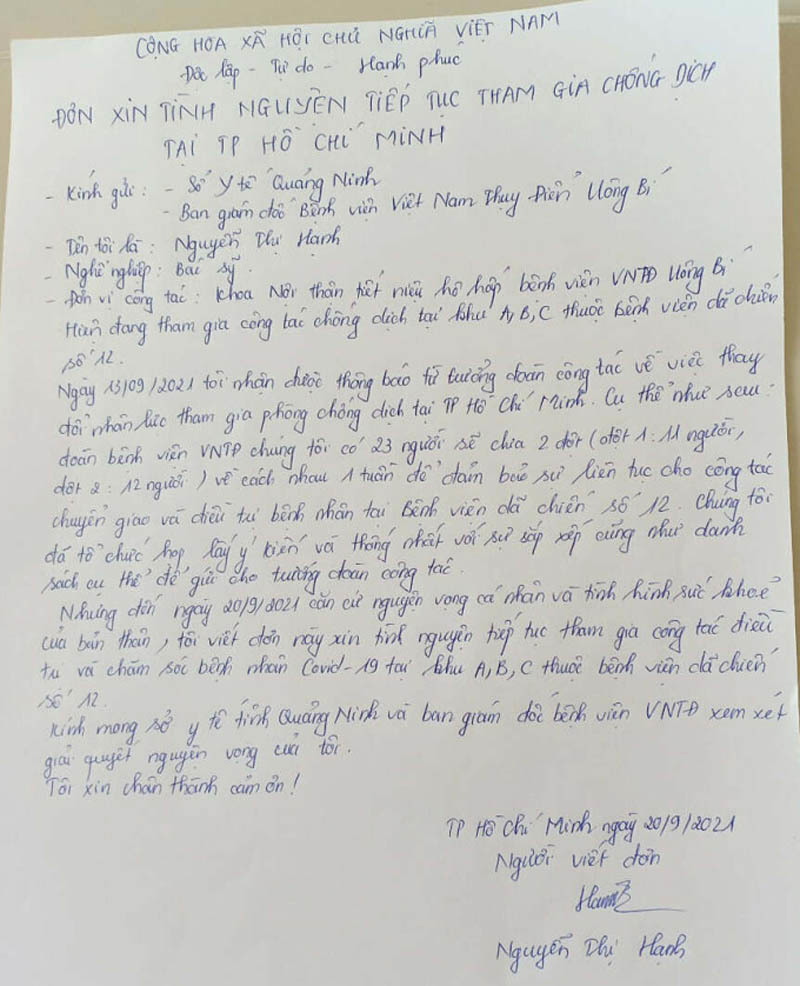 CỘNG HÒA XÃ HỘI CHỦ NGHĨA VIỆT NAM
Độc lập - Tự do - Hạnh phúc
ĐƠN XIN TÌNH NGUYỆN TIẾP TỤC THAM GIA CHỐNG DỊCH
TẠI TP HỒ CHÍ MINH
- Kính gửi : - Sở Y tế Quảng Ninh
- Ban giám đốc Bệnh viện Việt Nam Thụy Điển Uông Bí
- Tên tôi là : Nguyễn Thị Hạnh
- Nghề nghiệp : Bác sỹ
- Đơn vị công tác : Khoa Nội thận tiết niệu hô hấp bệnh viện VNTĐ Uông Bí
Hiện đang tham gia công tác chống dịch tại khu A, B, C thuộc bệnh viện dã chiến
số 12.
Ngày 13/09/2021 tôi nhận được thông báo từ trưởng đoàn công tác về việc thay
đổi nhân lực tham gia phòng chống dịch tại TP Hồ Chí Minh. Cụ thể như sau :
đoàn bệnh viện VNTĐ chúng tôi có 23 người sẽ chia 2 đợt (đợt 1 : 11 người,
đợt 2 : 12 người ) về cách nhau 1 tuần để đảm bảo sự liên tục cho công tác
chuyển giao và điều trị bệnh nhân tại Bệnh viện dã chiến số 12. Chúng tôi
đã tổ chức họp lấy ý kiến và thống nhất với sự sắp xếp cũng như danh
sách cụ thể để gửi cho trưởng đoàn công tác.
Nhưng đến ngày 20/9/2021 căn cứ nguyện vọng cá nhân và tình hình sức khoẻ
của bản thân, tôi viết đơn này xin tình nguyện tiếp tục tham gia công tác điều
trị và chăm sóc bệnh nhân Covid-19 tại khu A, B, C thuộc bệnh viện dã chiến
số 12.
Kính mong sở y tế tỉnh Quảng Ninh và ban giám đốc bệnh viện VNTĐ xem xét
giải quyết nguyện vọng của tôi.
Tôi xin chân thành cảm ơn !
TP Hồ Chí Minh ngày 20/9/2021
Người viết đơn
Hạnh
Nguyễn Thị Hạnh